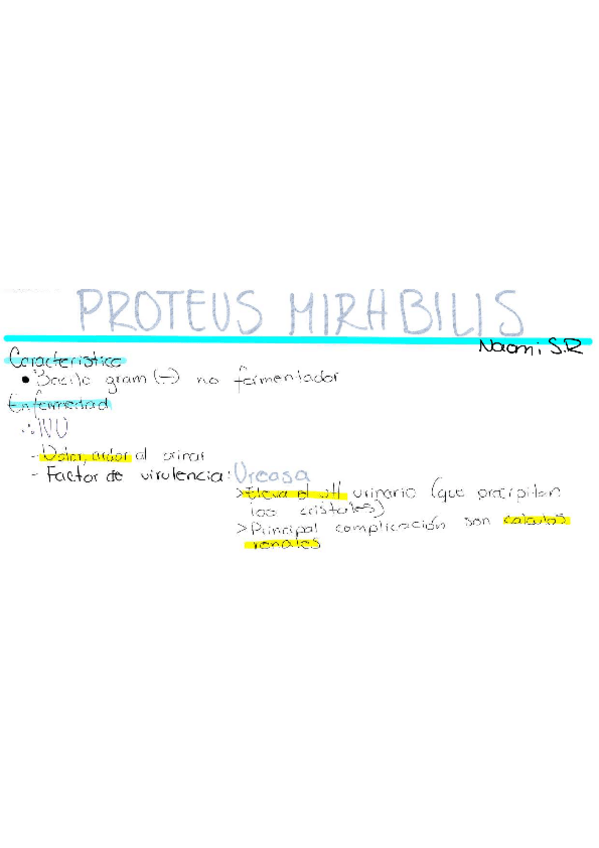 PROTEUS MIRABILIS
Naomi S.R
Característica
• Bacilo gram (-) no fermentador
Enfermedad
∴ IVU
- Dolor, ardor al orinar
- Factor de virulencia: Ureasa
> Eleva el pH urinario (que precipitan
los cristales)
> Principal complicación son calculos
renales